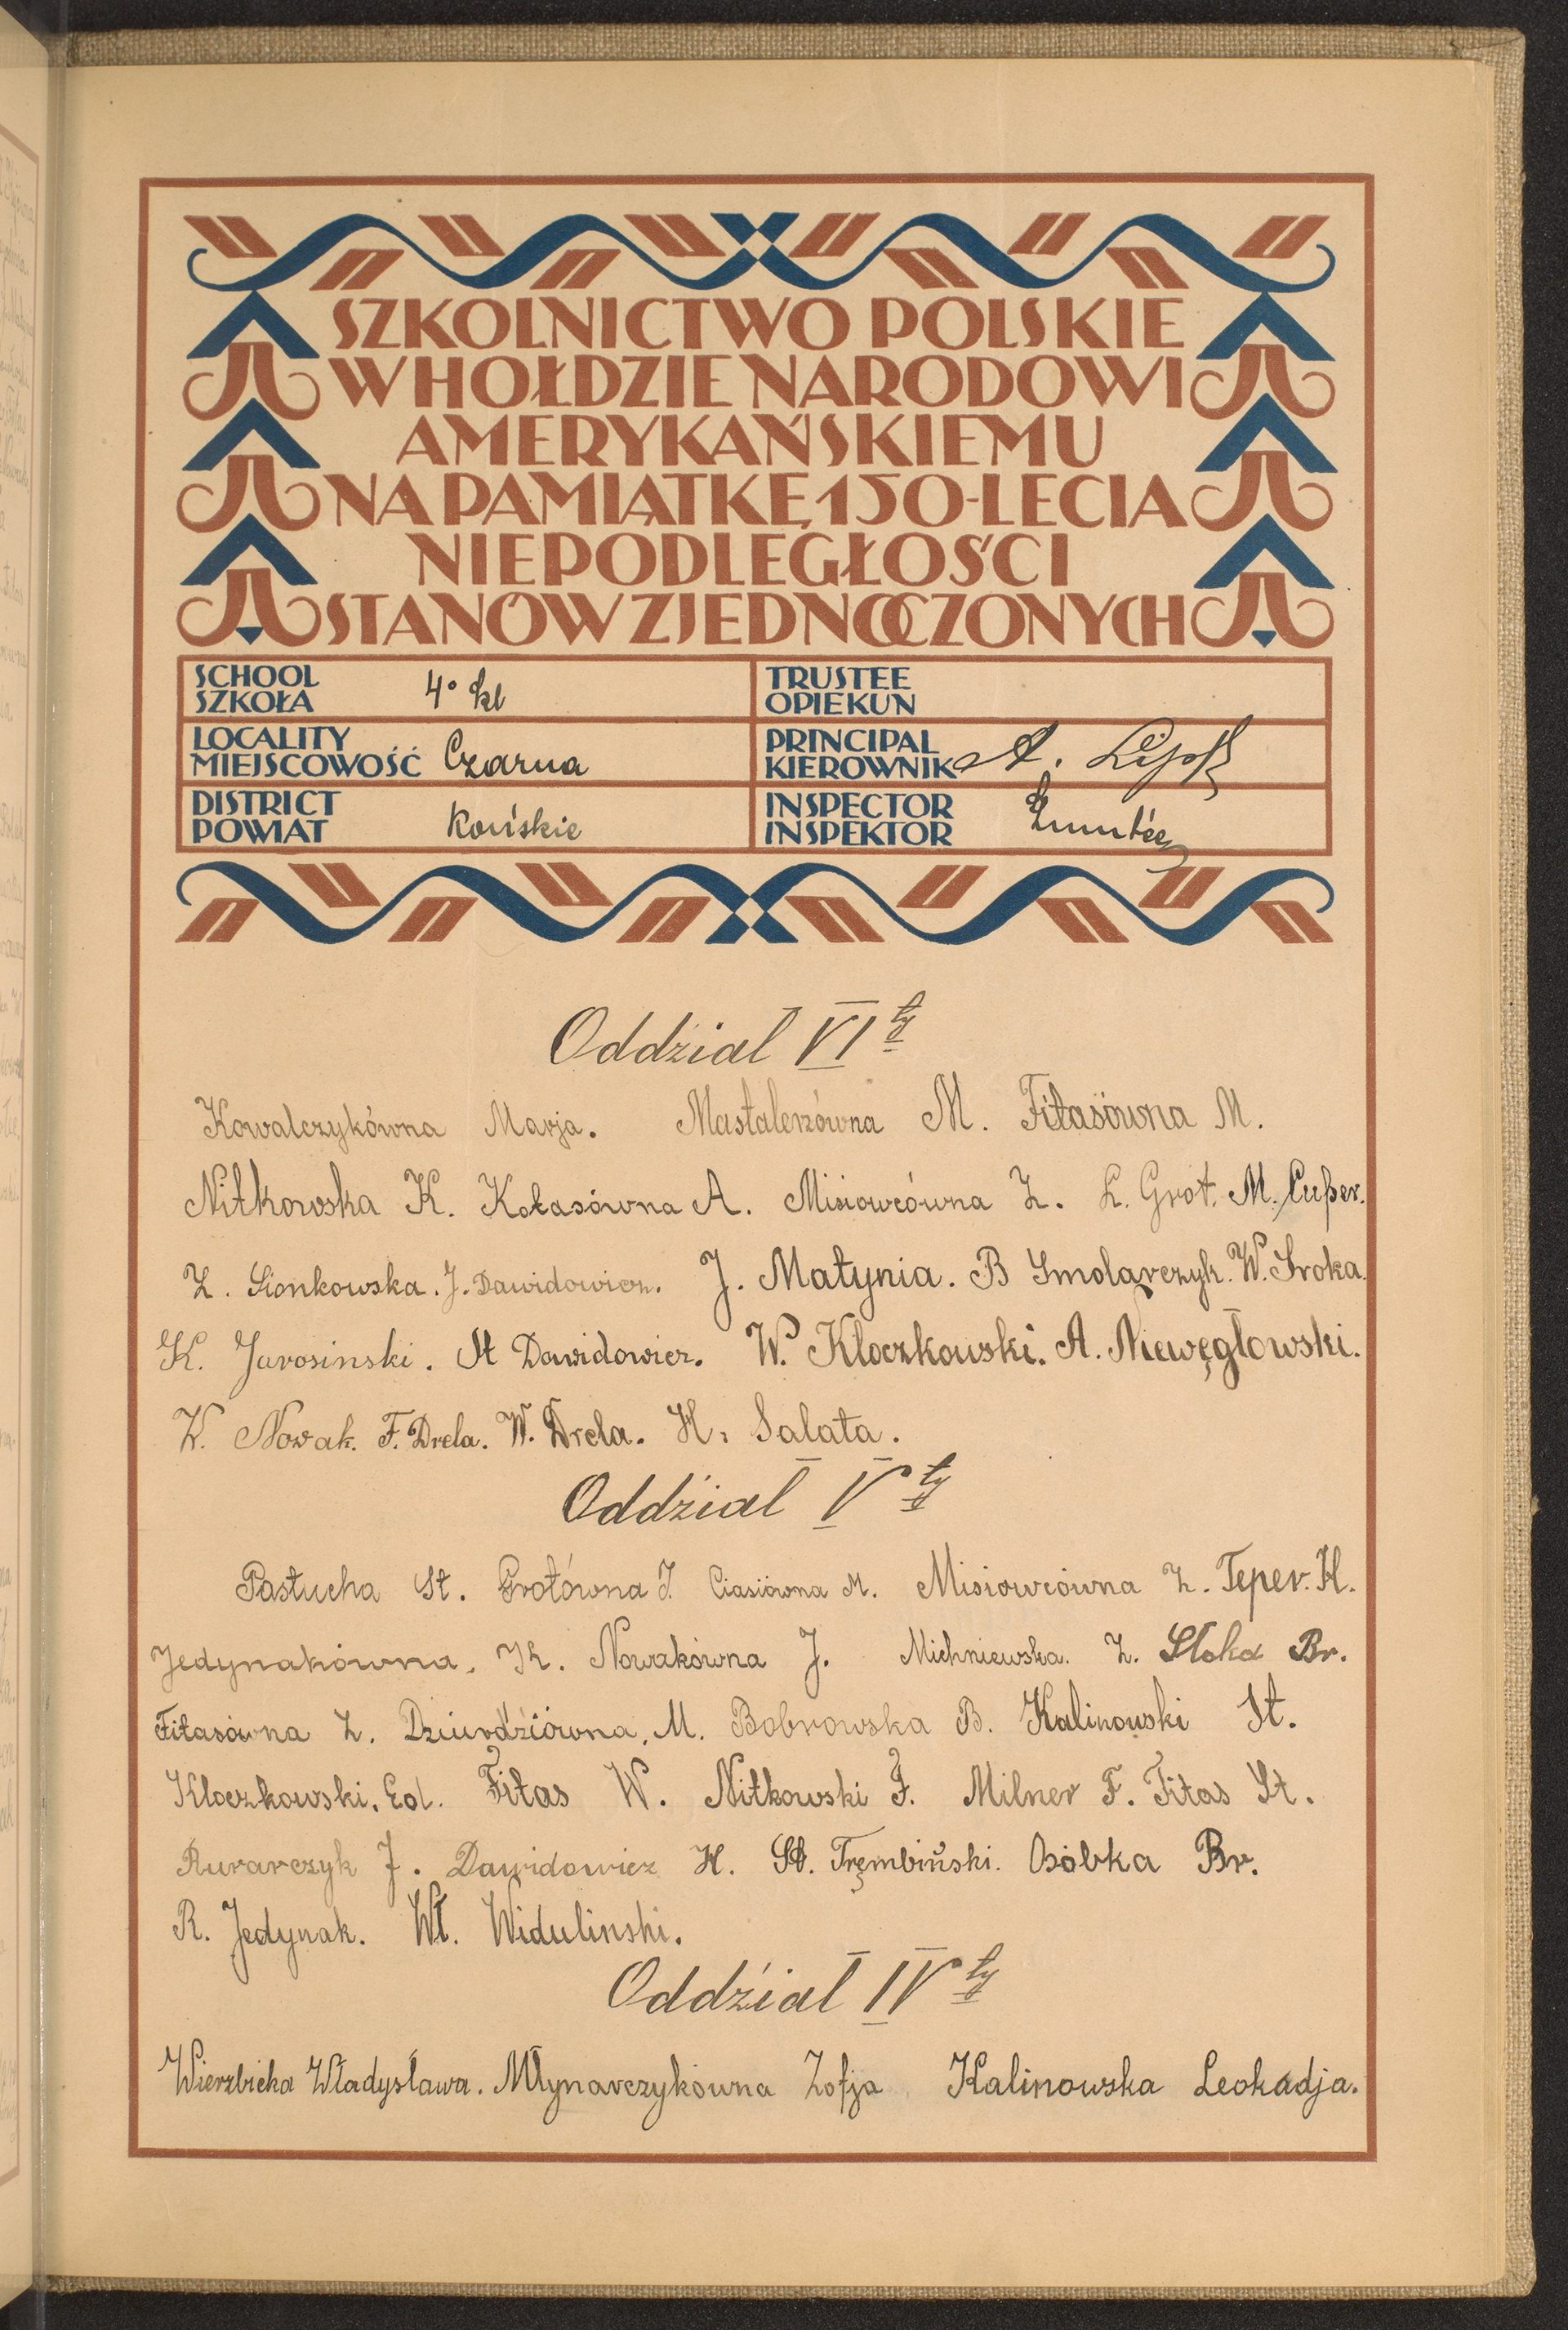 SZKOLNICTWO POLSKIE
W HOŁDZIE NARODOWI
AMERYKAŃSKIEMU
NA PAMIĄTKĘ 150-LECIA
NIEPODLEGŁOŚCI
STANÓW ZJEDNOCZONYCH
SCHOOL
SZKOŁA 4º kl
TRUSTEE
OPIEKUN
LOCALITY
MIEJSCOWOŚĆ Czarna
PRINCIPAL
KIEROWNIK A.
DISTRICT
POWIAT Końskie
INSPECTOR
INSPEKTOR
Oddział VI ty
Kowalczykówna Marja. Mastalerzówna M. Fitasówna M.
Nitkowska K. Kołasówna A. Misiowcówna Z. L. Grot. M. Cuper.
Z. Sionkowska. J. Dawidowicz. J. Matynia. B Smolarczyk. W. Sroka.
K. Jarosinski. St Dawidowicz. W. Kloczkowski. A. Niewęgłowski.
W. Nowak. F. Drela. W. Drela. H. Salata.
Oddział V ty
Pastucha St. Grotówna J. Ciasiówna M. Misiowcówna Z. Teper. H.
Jedynakówna. H. Nowakówna J. Michniewska. Z. Słoka Br.
Fitasówna Z. Dziurdziówna. M. Bobrowska B. Kalinowski St.
Kloczkowski. Ed. Fitas W. Nitkowski F. Milner F. Fitas St.
Rurarczyk J. Dawidowicz H. St. Trembiński. Osóbka Br.
R. Jedynak. Wł. Widulinski.
Oddział IV ty
Wierzbicka Władysława. Młynarczykówna Zofja Kalinowska Leokadja.